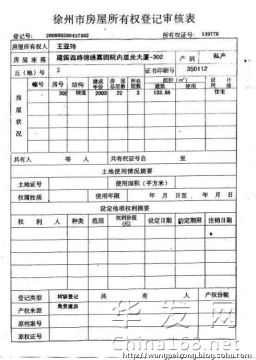 徐州市房屋所有权登记审核表
登记号: 200900200417502 所有权证号: 139778
房屋所有权人 王亚玲
房屋座落 建国西路锦绣嘉园院内星光大厦-302 产别 私产
丘(地)号 2 证书印刷号 350112
房屋状况
幢号 房号 结构 建成年份 房屋总层数 所在层数 建筑面积 设计用途
302 2003 11 3 133.88 住宅
共有人 等 人 共有权证号
土地使用情况摘要
土地证号 使用面积(平方米)
权属性质 使用年限 年 月 日至 年 月 日
设定他项权利摘要
权利人 种类 范围 权利价值(元) 设定日期 约定期限 注销日期
登记类型 共有人 产权份额
产权来源
原档案号
原权证号
华发网
China168.net
http://wangpeirong.blog.sohu.com